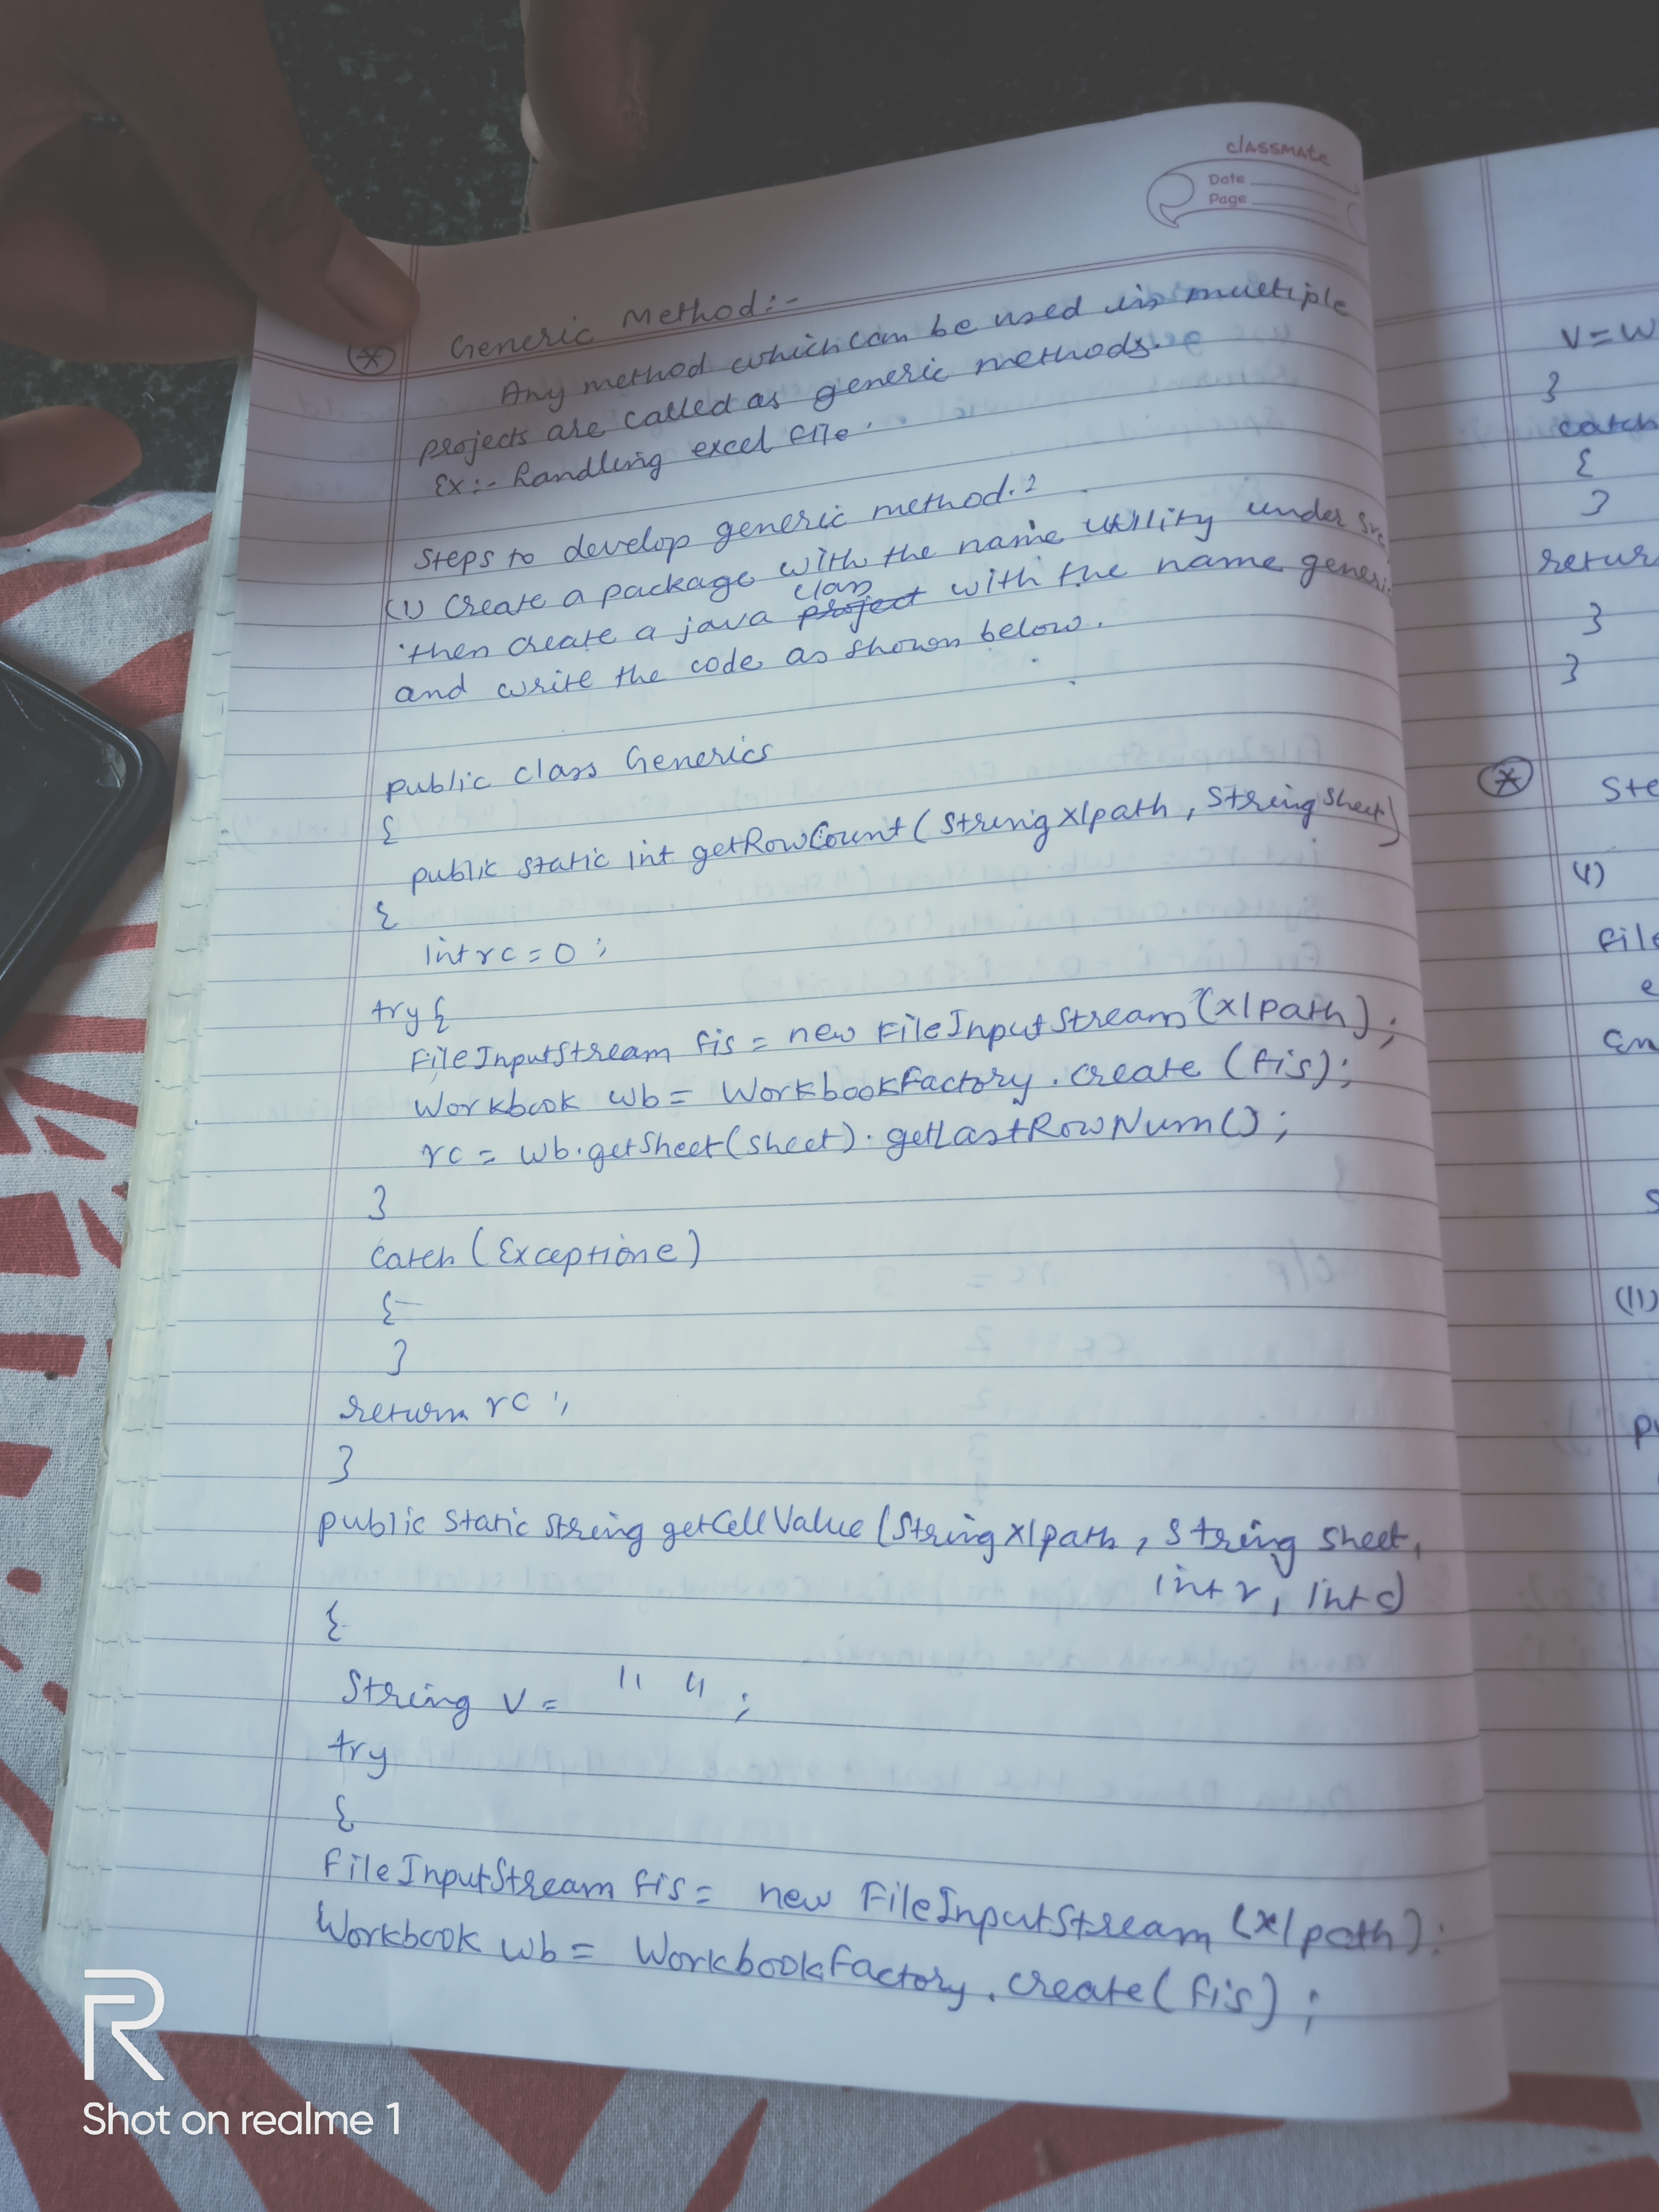 classmate
Date
Page
Generic Method:-
Any method which can be used in multiple
projects are called as generic methods.
Ex:- handling excel file.
Steps to develop generic method.?
(1) Create a package with the name utility under src
then create a java project class with the name generi
and write the code as shown below.
public class Generics
{
public static int getRowCount(String xlpath, String sheet)
{
int rc = 0;
try {
FileInputStream fis = new FileInputStream(xlpath);
Workbook wb = WorkbookFactory.create (fis);
rc = wb.getSheet(sheet).getLastRowNum();
}
catch (Exception e)
{
}
return rc;
}
public static String getCellValue (String xlpath, String sheet,
int r, int c)
{
String v = " ";
try
{
FileInputStream fis = new FileInputStream (xlpath);
Workbook wb = WorkbookFactory.create(fis);
v = w
}
catch
{
}
retur
}
}
Ste
file
e
(11)
R
Shot on realme 1